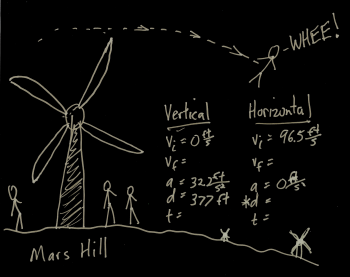 WHEE!
Vertical
Vi = 0 ft/s
Vf =
a = 32.2 ft/s²
d = 377 ft
t =
Horizontal
Vi = 96.5 ft/s
Vf =
a = 0 ft/s²
*d =
t =
Mars Hill